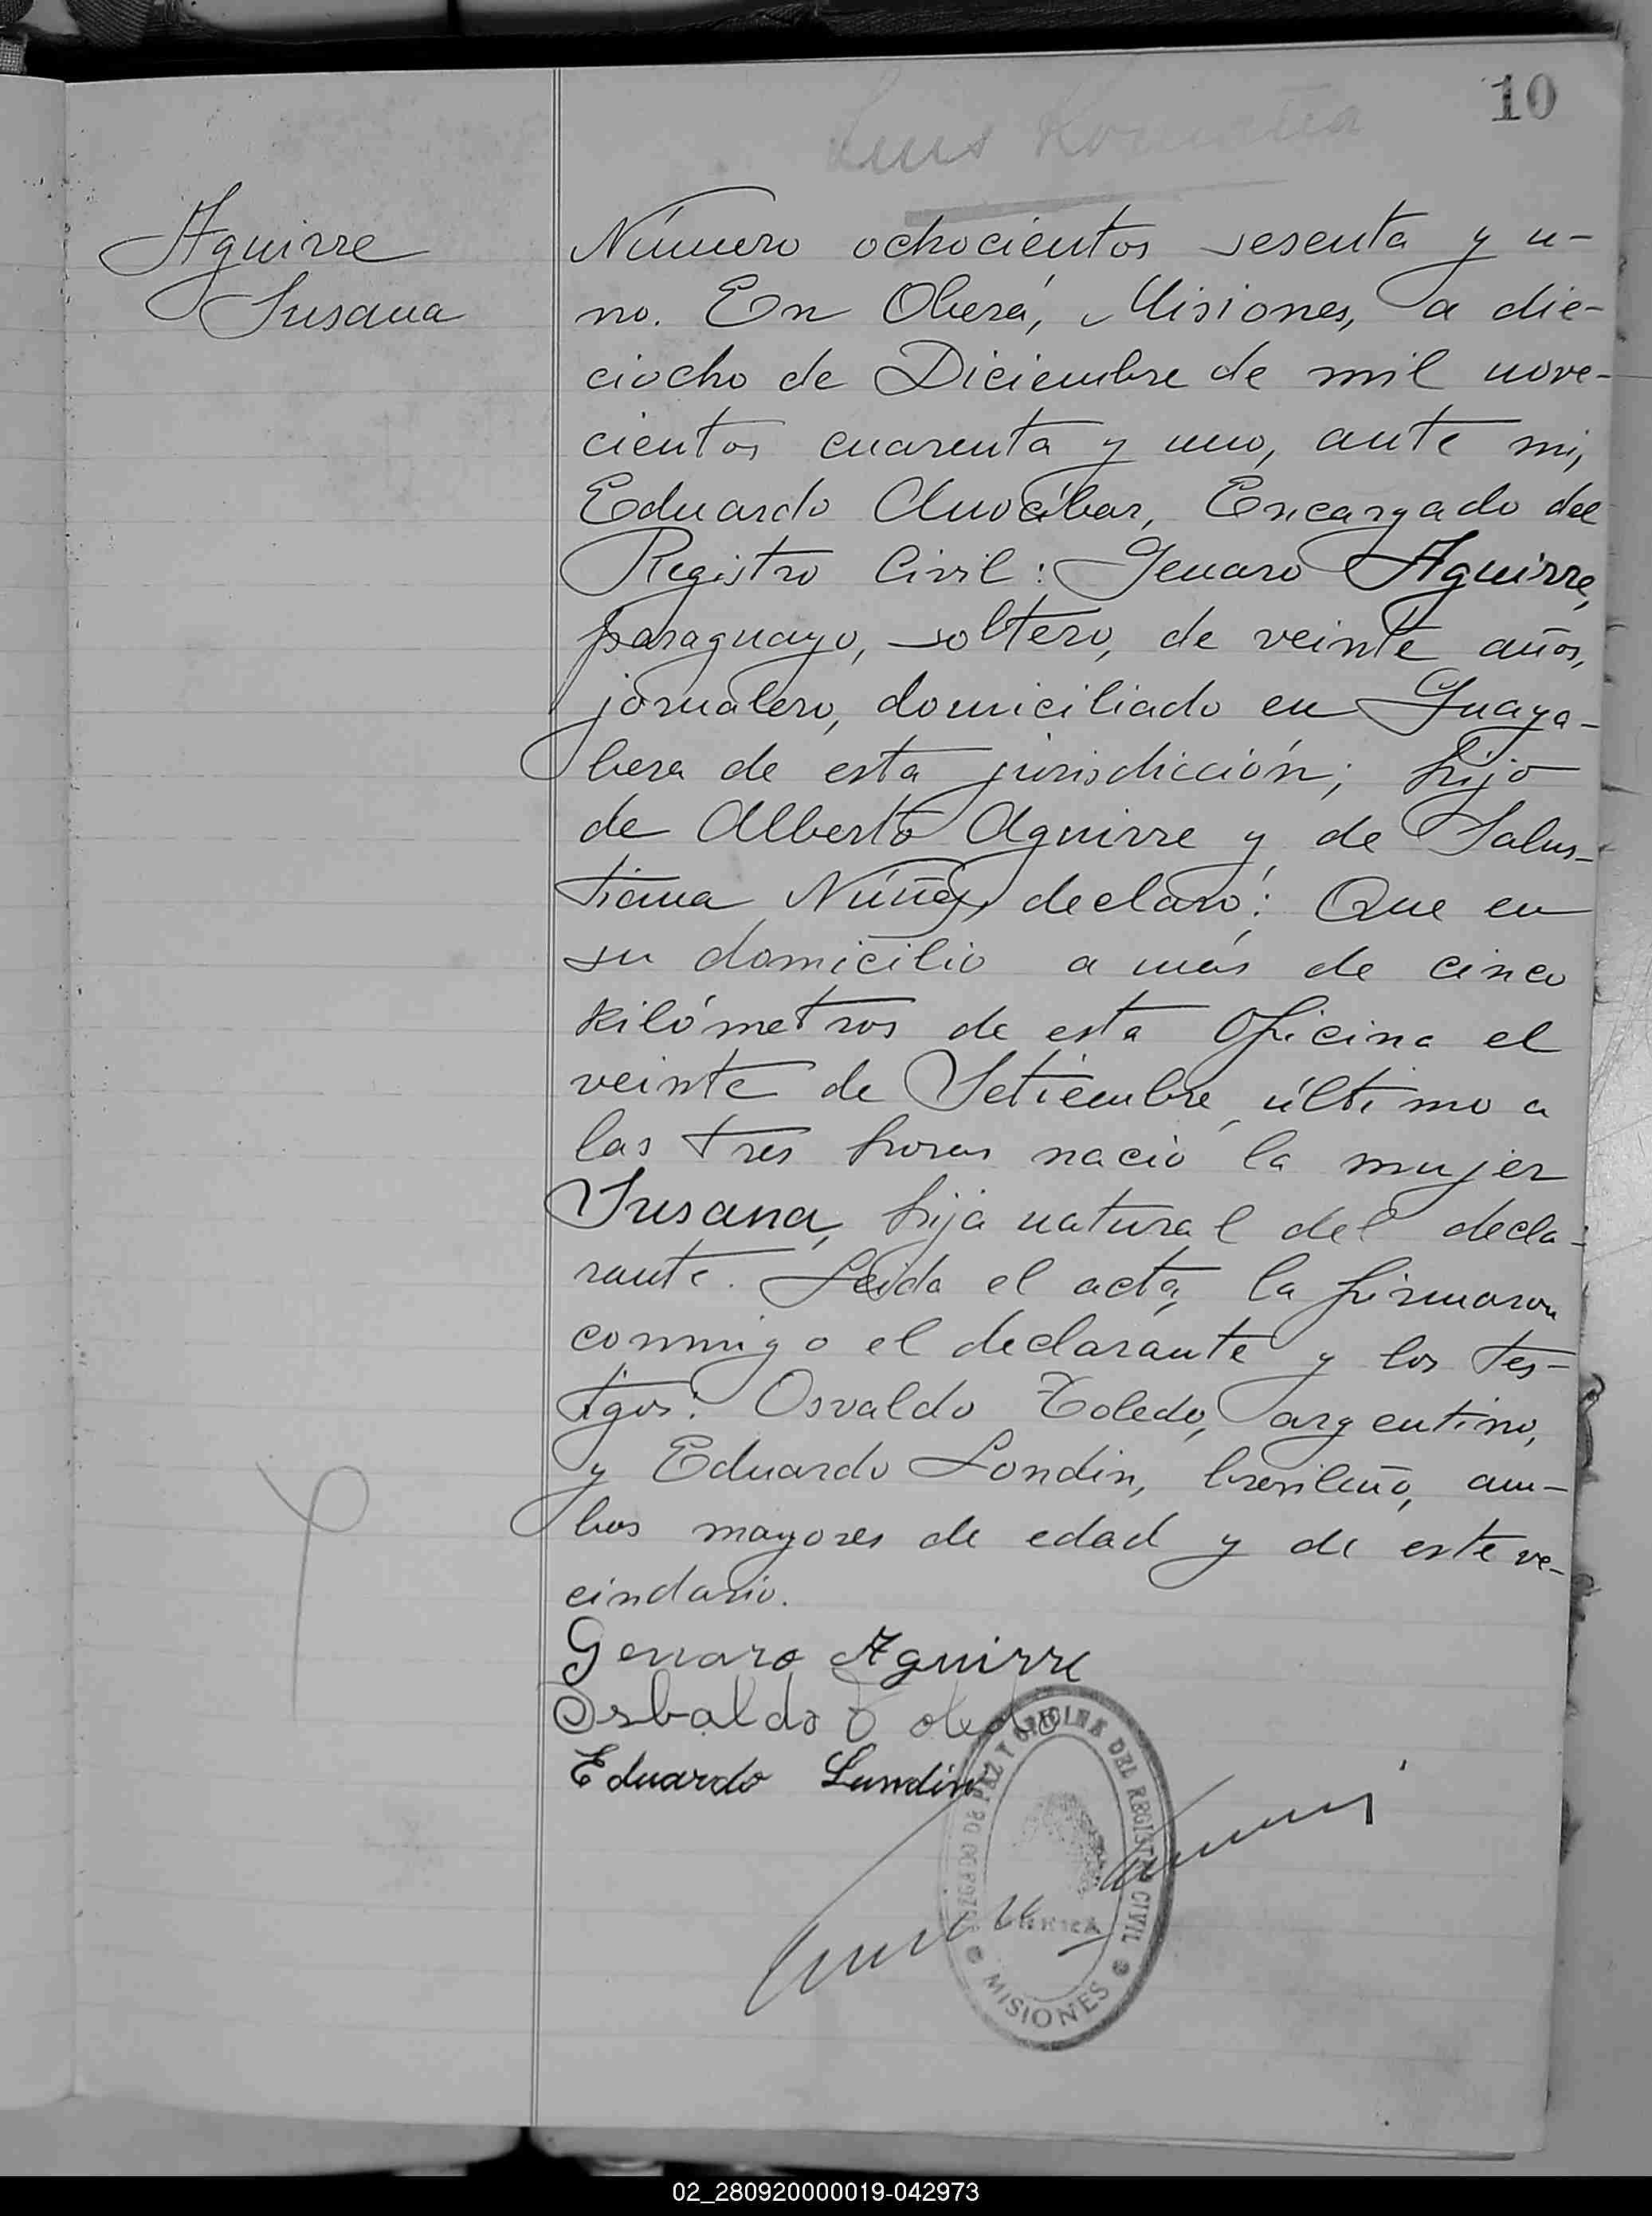 10
Luis
Aguirre
Susana
Número ochocientos sesenta y u-
no. En Oberá, Misiones, a die-
ciocho de Diciembre de mil nove-
cientos cuarenta y uno, ante mi,
Eduardo Encargado del
Registro Civil: Genaro Aguirre,
paraguayo, soltero, de veinte años,
jornalero, domiciliado en Guaya-
bera de esta jurisdicción; hijo
de Alberto Aguirre y de Salus-
tiana Núñez, declaró: Que en
su domicilio a más de cinco
kilómetros de esta Oficina el
veinte de Setiembre último a
las tres horas nació la mujer
Susana, hija natural del decla-
rante. Leida el acta, la firmaron
conmigo el declarante y los tes-
tigos: Osvaldo Toledo, argentino,
y Eduardo Londin, brasileño, am-
bos mayores de edad y de este ve-
cindario.
Genaro Aguirre
Osbaldo Toledo
Eduardo Lundin
JUZGADO DE PAZ Y OFICINA DEL REGISTRO CIVIL
MISIONES
02_280920000019-042973